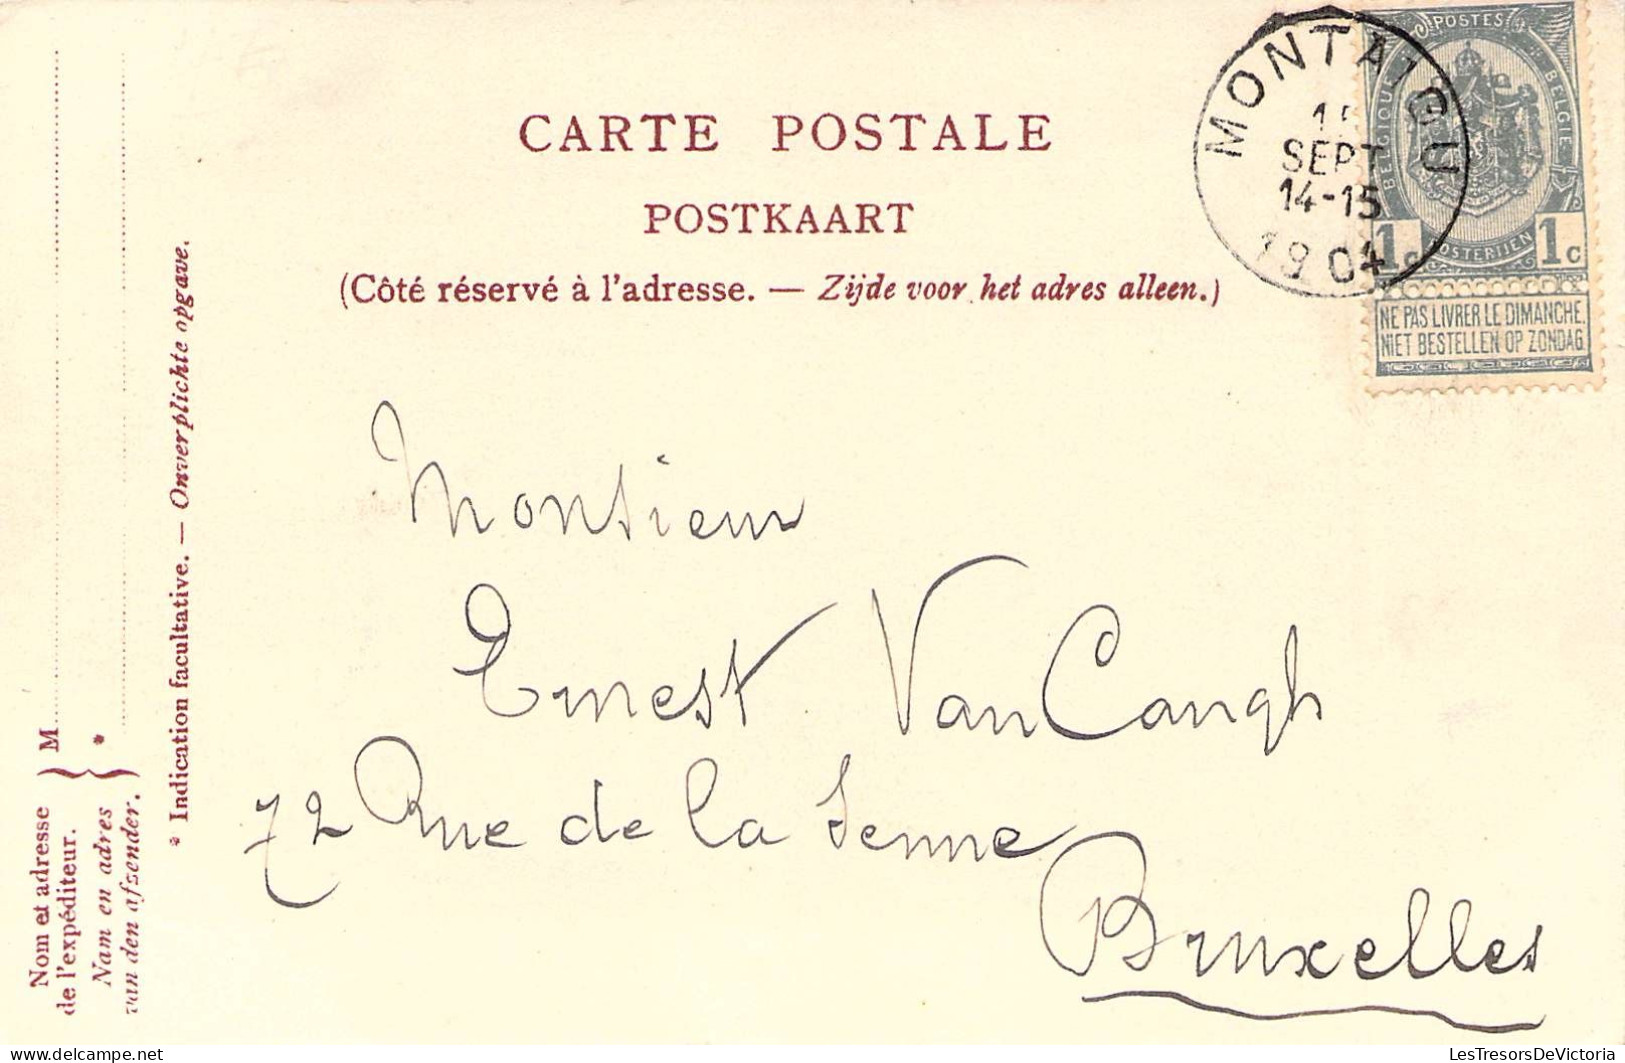 CARTE POSTALE
POSTKAART
(Côté réservé à l'adresse. — Zijde voor het adres alleen.)
MONTAIGU
SEPT
14-15
1904
POSTES
BELGIQUE
BELGIE
POSTERIJEN
1c 1c
NE PAS LIVRER LE DIMANCHE
NIET BESTELLEN OP ZONDAG
Monsieur
Ernest Van Cangh
72 Rue de la Senne
Bruxelles
Nom et adresse
de l'expéditeur.
Nam en adres
van den afzender.
M
*
* Indication facultative. — Onverplichte opgave.
delcampe.net
LesTresorsDeVictoria